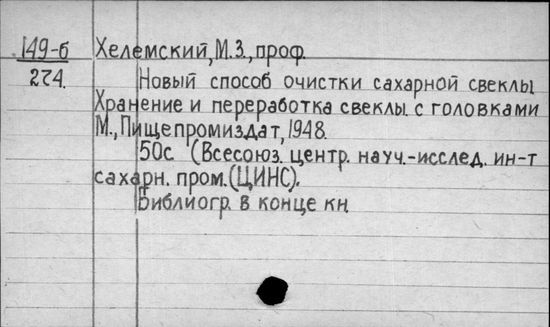 149-б Хелемский, М.З., проф.
274. Новый способ очистки сахарной свеклы
Хранение и переработка свеклы с головками
М., Пищепромиздат, 1948.
50с (Всесоюз. центр. науч.-исслед. ин-т
сахарн. пром. (ЦИНС).
Библиогр. в конце кн.